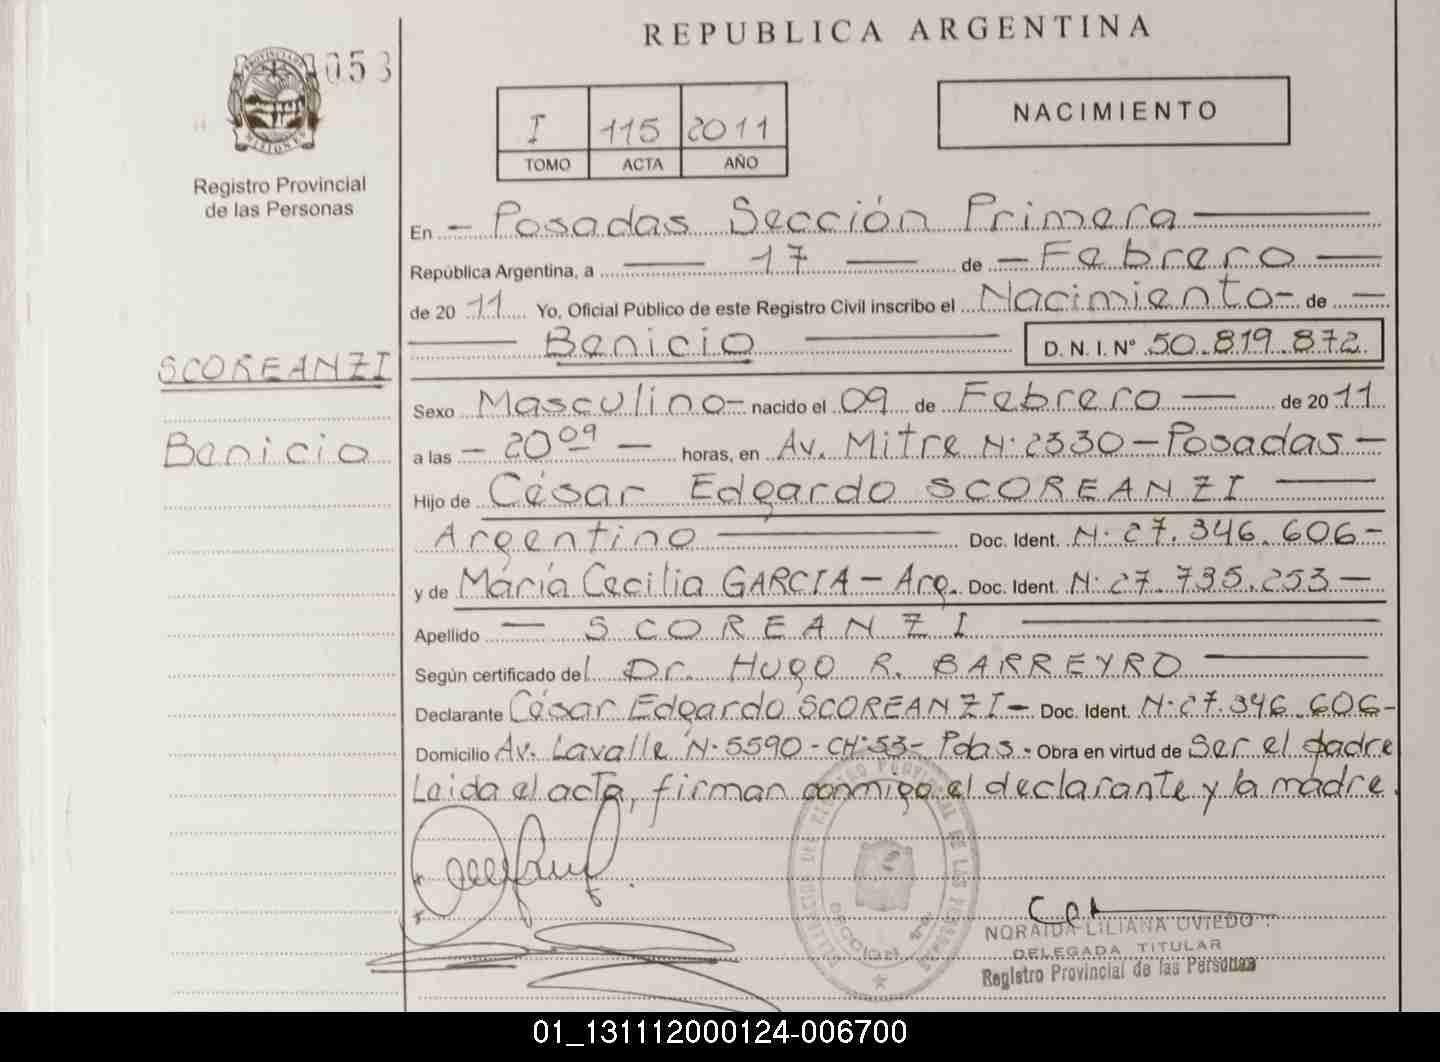 REPUBLICA ARGENTINA
053
NACIMIENTO
I 115 2011
TOMO ACTA AÑO
Registro Provincial
de las Personas
En - Posadas Sección Primera
República Argentina, a 17 de - Febrero -
de 2011 Yo, Oficial Público de este Registro Civil inscribo el Nacimiento - de -
Benicio D.N.I. Nº 50.819.872
SCOREANZI
Sexo Masculino - nacido el 09 de Febrero - de 2011
Benicio
a las - 20 09 - horas, en Av. Mitre N: 2330 - Posadas -
Hijo de César Edgardo SCOREANZI
Argentino Doc. Ident. N: 27.346.606 -
y de María Cecilia GARCIA - Arg. Doc. Ident. N: 27.735.253 -
Apellido - SCOREANZI
Según certificado del Dr. HUGO R. BARREYRO
Declarante César Edgardo SCOREANZI - Doc. Ident. N: 27.346.606 -
Domicilio Av. Lavalle N: 5590 - CH: 53 - Pdas. - Obra en virtud de Ser el padre
Leida el acta, firman conmigo el declarante y la madre.
SECCION 1ra
NORAIDA LILIANA OVIEDO
DELEGADA TITULAR
Registro Provincial de las Personas
01_131112000124-006700